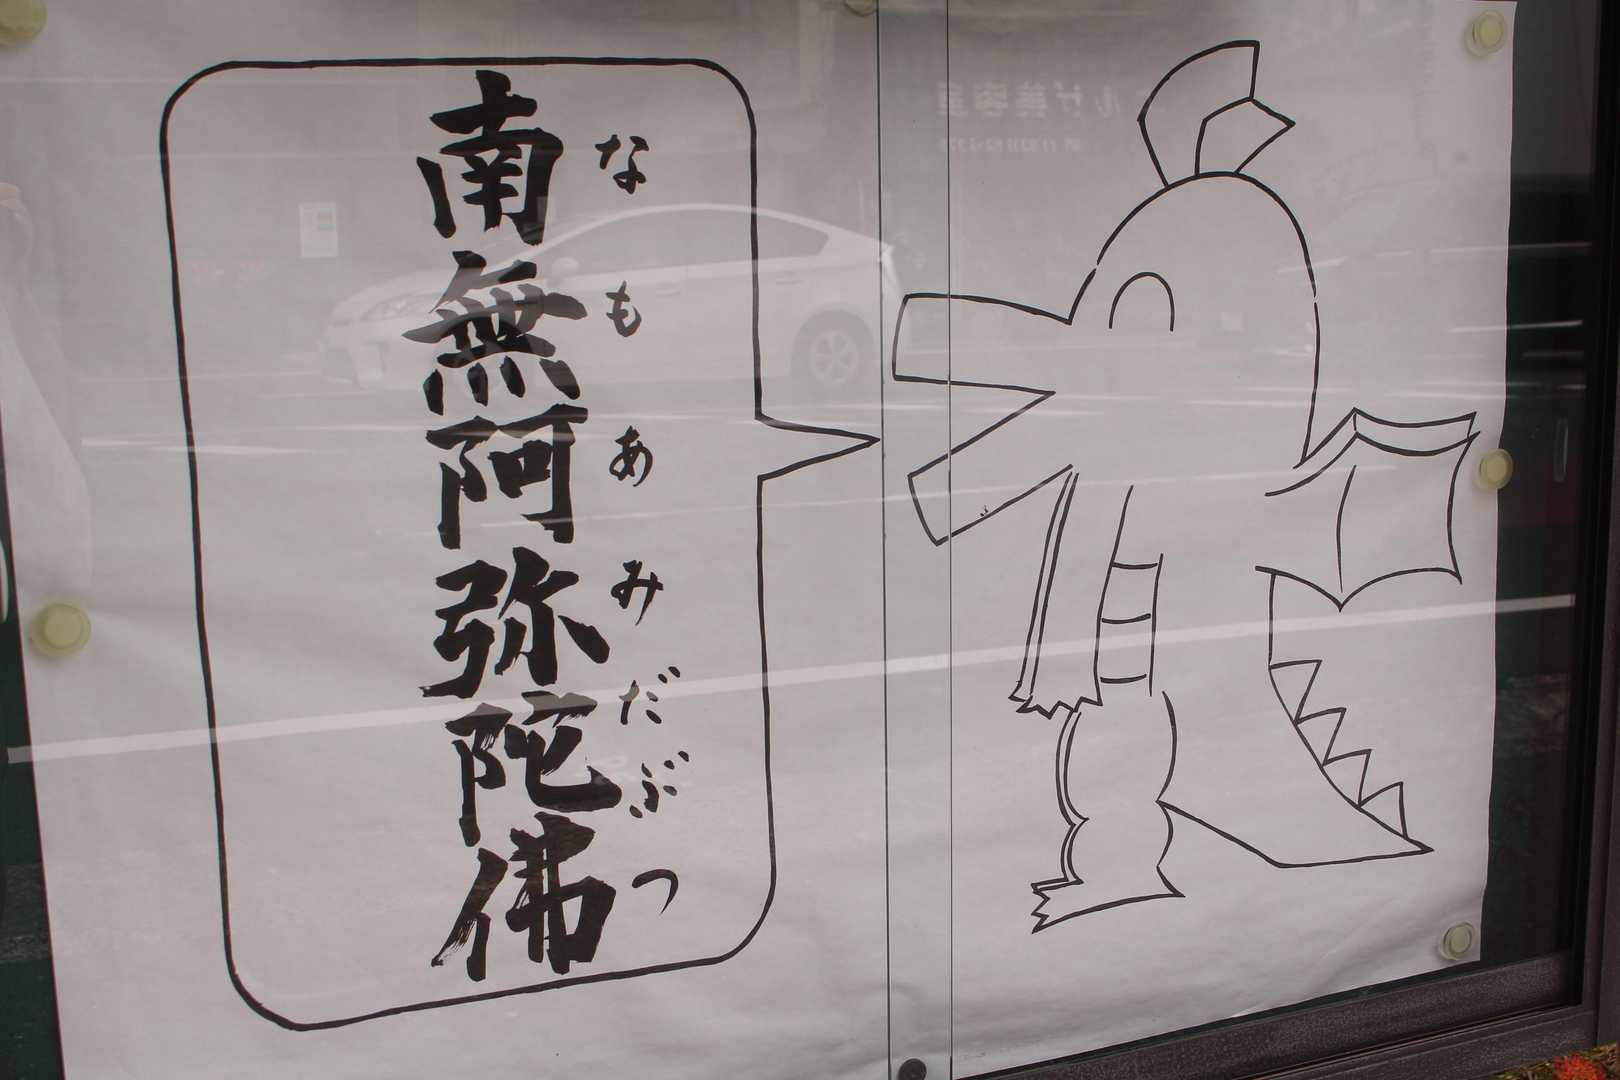 南無阿弥陀佛
なもあみだぶつ